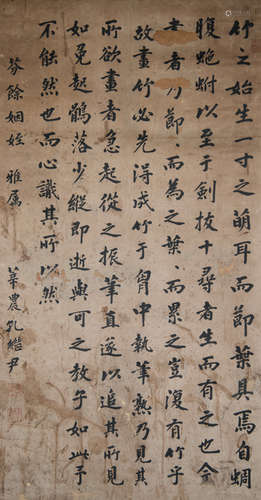 竹之始生一寸之萌耳而節葉具焉自蜩
腹虵蚹以至于劍拔十尋者生而有之也今
者乃節、而為之葉、而累之豈復有竹乎
故畫竹必先得成竹于胷中執筆熟乃見其
所欲畫者急起從之振筆直遂以追其所見
如兔起鶻落少縱即逝與可之教予如此予
不能然也而心識其所以然
芬餘姻姪雅属
華農孔繼尹